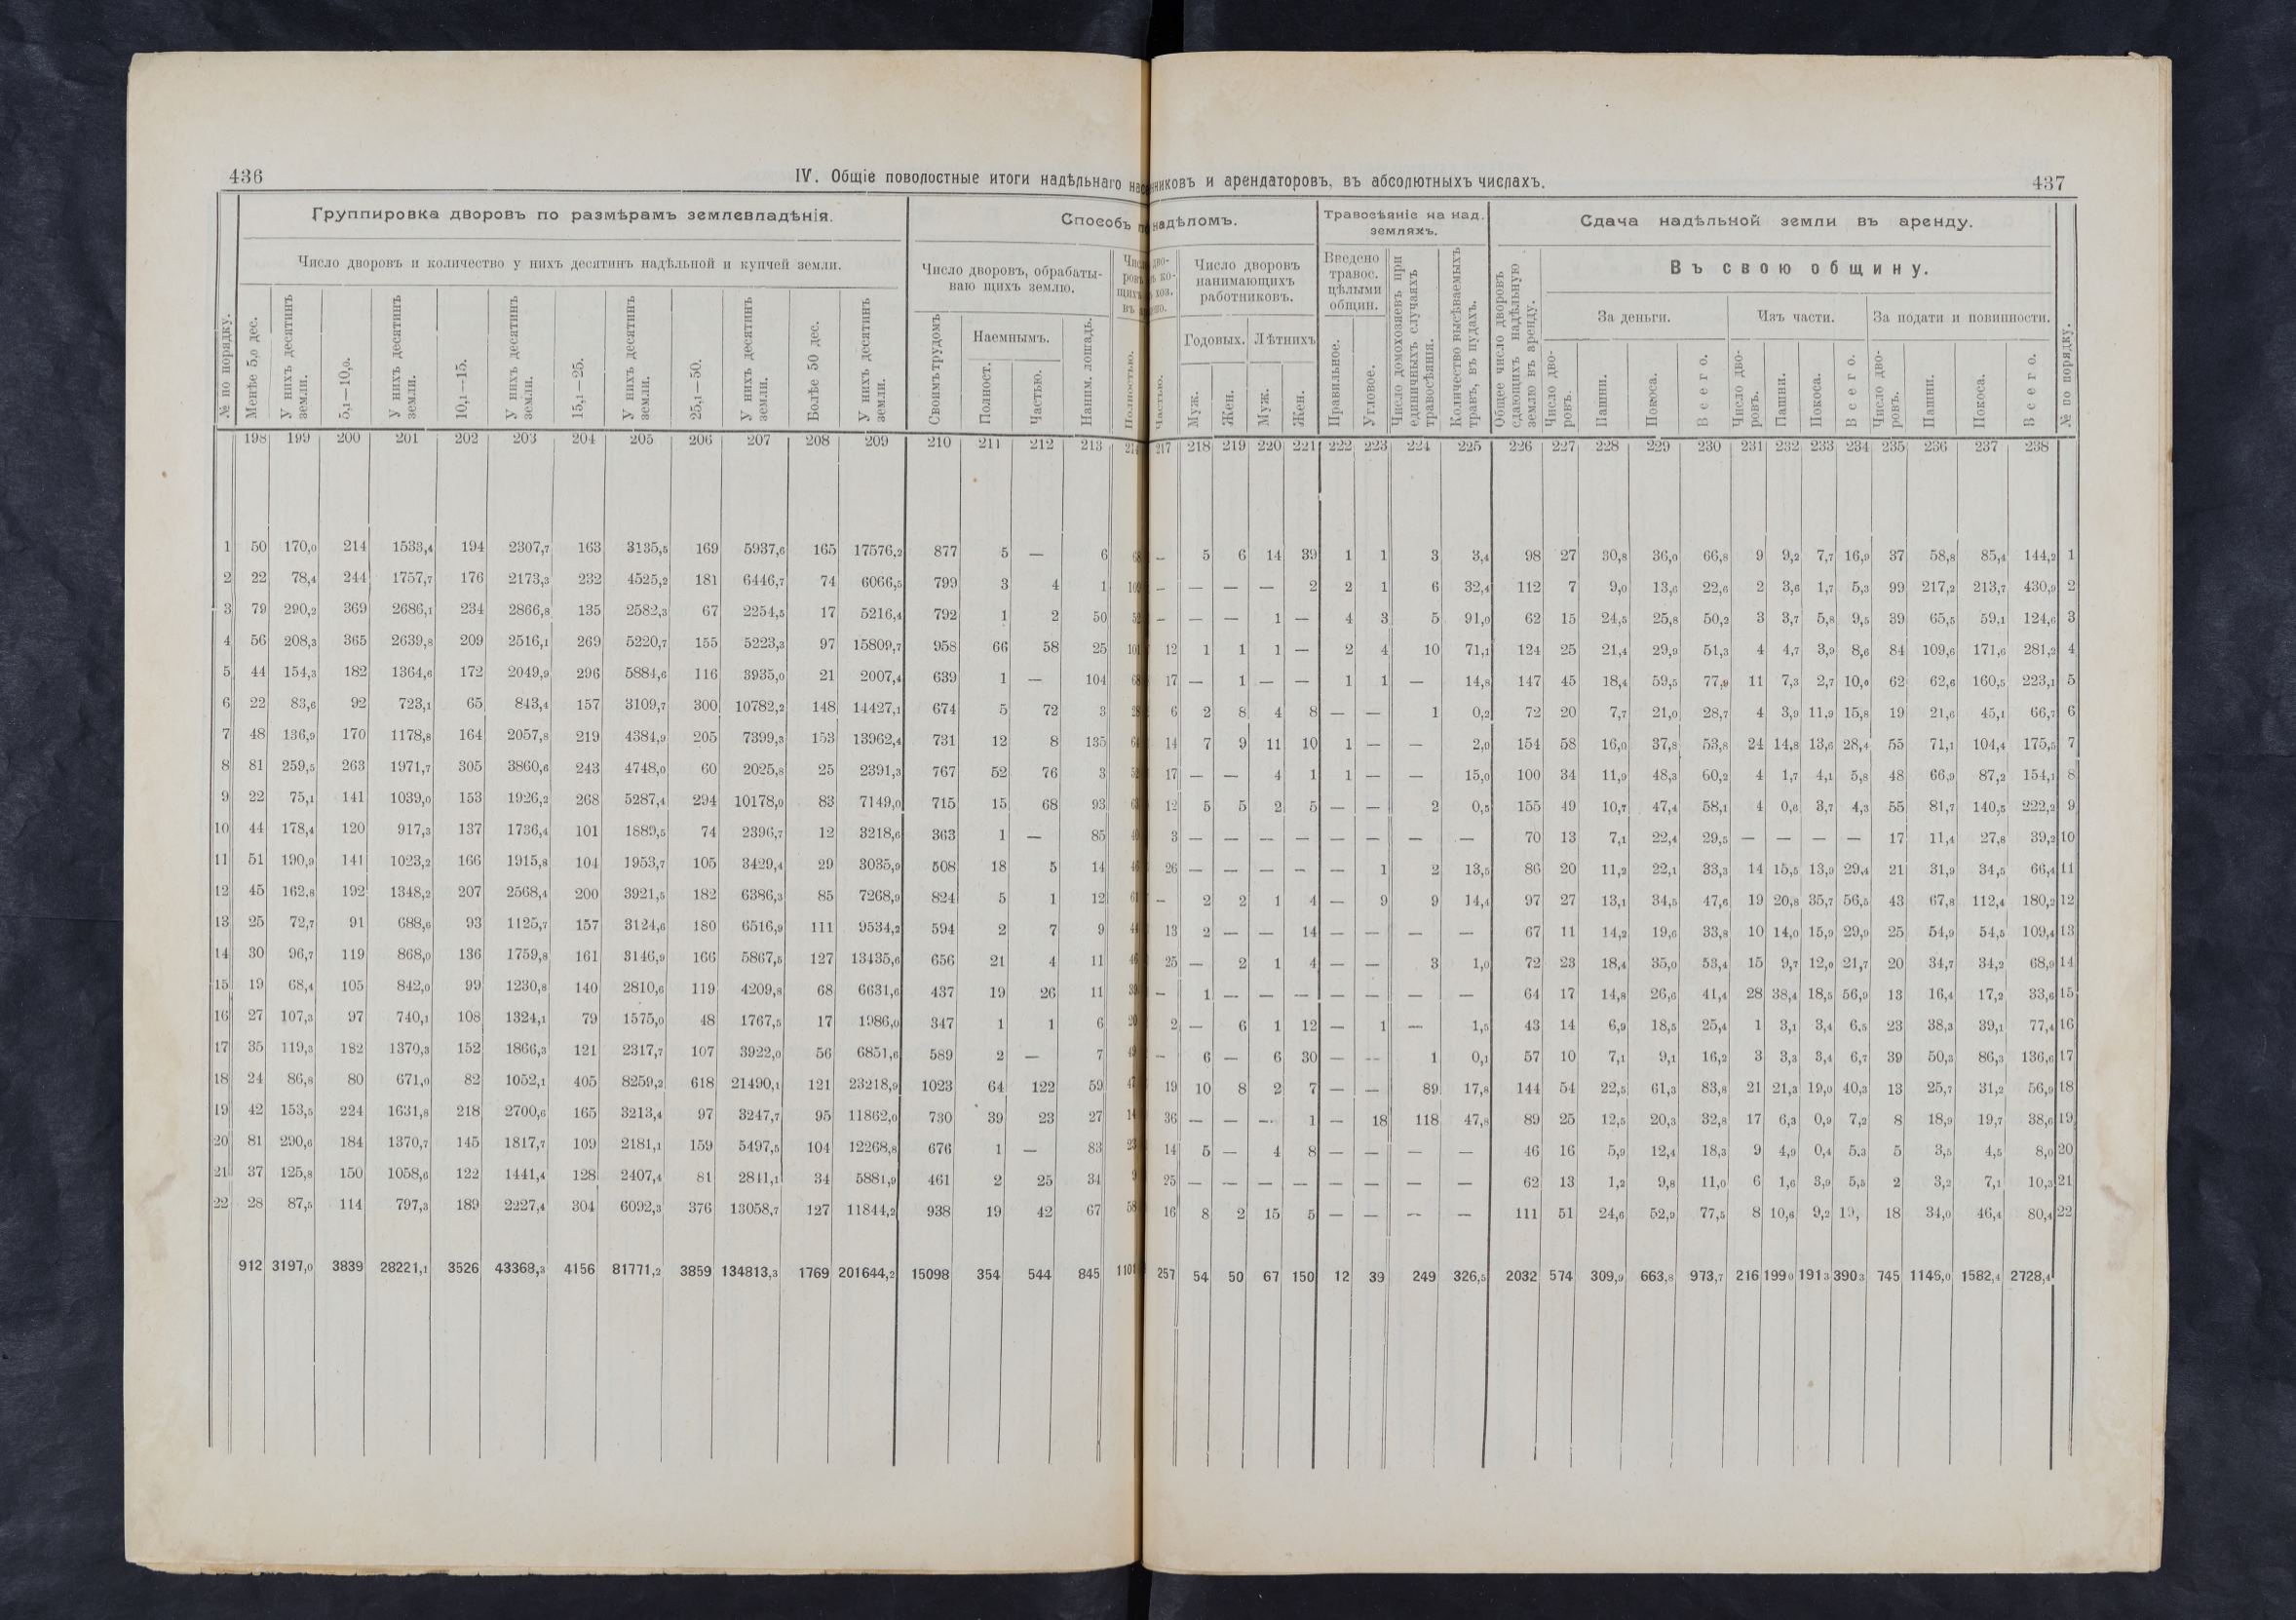 436
IV. Общіе поволостные итоги надѣльнаго
Группировка дворовъ по размѣрамъ землевладѣнія.
Способъ
Число дворовъ и количество у нихъ десятинъ надѣльной и купчей земли.
Число дворовъ, обрабаты-
ваю щихъ землю.
№ по порядку.
Менѣе 5,0 дес.
У нихъ десятинъ земли.
5,1—10,0.
У нихъ десятинъ земли.
10,1—15.
У нихъ десятинъ земли.
15,1—25.
У нихъ десятинъ земли.
25,1—50.
У нихъ десятинъ земли.
Болѣе 50 дес.
У нихъ десятинъ земли.
Своимъ трудомъ
Наемнымъ.
Полност.
Частью.
Наим. лошадь.
Полностью.
198 199 200 201 202 203 204 205 206 207 208 209 210 211 212 213
1 50 170,0 214 1533,4 194 2307,7 163 3135,5 169 5937,6 165 17576,2 877 5 — 6
2 22 78,4 244 1757,7 176 2173,3 232 4525,2 181 6446,7 74 6066,5 799 3 4 1
3 79 290,2 369 2686,1 234 2866,8 135 2582,3 67 2254,5 17 5216,4 792 1 2 50
4 56 208,3 365 2639,8 209 2516,1 269 5220,7 155 5223,3 97 15809,7 958 66 58 25
5 44 154,3 182 1364,6 172 2049,9 296 5884,6 116 3935,0 21 2007,4 639 1 — 104
6 22 83,6 92 723,1 65 843,4 157 3109,7 300 10782,2 148 14427,1 674 5 72 3
7 48 136,9 170 1178,8 164 2057,8 219 4384,9 205 7399,3 153 13962,4 731 12 8 135
8 81 259,5 263 1971,7 305 3860,6 243 4748,0 60 2025,8 25 2391,3 767 52 76 3
9 22 75,1 141 1039,0 153 1926,2 268 5287,4 294 10178,0 83 7149,0 715 15 68 93
10 44 178,4 120 917,3 137 1736,4 101 1889,5 74 2396,7 12 3218,6 363 1 — 85
11 51 190,9 141 1023,2 166 1915,8 104 1953,7 105 3429,4 29 3035,9 508 18 5 14
12 45 162,8 192 1348,2 207 2568,4 200 3921,5 182 6386,3 85 7268,9 824 5 1 12
13 25 72,7 91 688,6 93 1125,7 157 3124,6 180 6516,9 111 9534,2 594 2 7 9
14 30 96,7 119 868,0 136 1759,8 161 3146,9 166 5867,5 127 13435,6 656 21 4 11
15 19 68,4 105 842,0 99 1230,8 140 2810,6 119 4209,8 68 6631,6 437 19 26 11
16 27 107,3 97 740,1 108 1324,1 79 1575,0 48 1767,5 17 1986,0 347 1 1 6
17 35 119,3 182 1370,3 152 1866,3 121 2317,7 107 3922,0 56 6851,6 589 2 — 7
18 24 86,8 80 671,0 82 1052,1 405 8259,2 618 21490,1 121 23218,9 1023 64 122 59
19 42 153,5 224 1631,8 218 2700,6 165 3213,4 97 3247,7 95 11862,0 730 39 23 27
20 81 290,6 184 1370,7 145 1817,7 109 2181,1 159 5497,5 104 12268,8 676 1 — 83
21 37 125,8 150 1058,6 122 1441,4 128 2407,4 81 2811,1 34 5881,9 461 2 25 34
22 28 87,5 114 797,3 189 2227,4 304 6092,3 376 13058,7 127 11844,2 938 19 42 67
912 3197,0 3839 28221,1 3526 43368,3 4156 81771,2 3859 134813,3 1769 201644,2 15098 354 544 845 1101
никовъ и арендаторовъ, въ абсолютныхъ числахъ.
437
надѣломъ.
Травосѣяніе на над.
земляхъ.
Сдача надѣльной земли въ аренду.
Число дворовъ
нанимающихъ
работниковъ.
Введено
травос.
цѣлыми
общин.
Въ свою общину.
Частью.
Годовыхъ.
Лѣтнихъ
Муж.
Жен.
Муж.
Жен.
Правильное.
Угловое.
Число домохозяевъ при единичныхъ случаяхъ травосѣянія.
Количество высѣваемыхъ травъ, въ пудахъ.
Общее число дворовъ сдающихъ надѣльную землю въ аренду.
За деньги.
Изъ части.
За подати и повинности.
Число дво-
ровъ.
Пашни.
Покоса.
Всего.
Число дво-
ровъ.
Пашни.
Покоса.
Всего.
Число дво-
ровъ.
Пашни.
Покоса.
Всего.
№ по порядку.
217 218 219 220 221 222 223 224 225 226 227 228 229 230 231 232 233 234 235 236 237 238
— 5 6 14 39 1 1 3 3,4 98 27 30,8 36,0 66,8 9 9,2 7,7 16,9 37 58,8 85,4 144,2 1
— — — — 2 2 1 6 32,4 112 7 9,0 13,6 22,6 2 3,6 1,7 5,3 99 217,2 213,7 430,9 2
— — — 1 — 4 3 5 91,0 62 15 24,5 25,8 50,2 3 3,7 5,8 9,5 39 65,5 59,1 124,6 3
12 1 1 1 — 2 4 10 71,1 124 25 21,4 29,9 51,3 4 4,7 3,9 8,6 84 109,6 171,6 281,2 4
17 — 1 — — 1 1 — 14,8 147 45 18,4 59,5 77,9 11 7,3 2,7 10,0 62 62,6 160,5 223,1 5
6 2 8 4 8 — — 1 0,2 72 20 7,7 21,0 28,7 4 3,9 11,9 15,8 19 21,6 45,1 66,7 6
14 7 9 11 10 1 — — 2,0 154 58 16,0 37,8 53,8 24 14,8 13,6 28,4 55 71,1 104,4 175,5 7
17 — — 4 1 1 — — 15,0 100 34 11,9 48,3 60,2 4 1,7 4,1 5,8 48 66,9 87,2 154,1 8
12 5 5 2 5 — — 2 0,5 155 49 10,7 47,4 58,1 4 0,6 3,7 4,3 55 81,7 140,5 222,2 9
3 — — — — — — — — 70 13 7,1 22,4 29,5 — — — — 17 11,4 27,8 39,2 10
26 — — — — — 1 2 13,5 86 20 11,2 22,1 33,3 14 15,5 13,9 29,4 21 31,9 34,5 66,4 11
— 2 2 1 4 — 9 9 14,4 97 27 13,1 34,5 47,6 19 20,8 35,7 56,5 43 67,8 112,4 180,2 12
13 2 — — 14 — — — — 67 11 14,2 19,6 33,8 10 14,0 15,9 29,9 25 54,9 54,5 109,4 13
25 — 2 1 4 — — 3 1,0 72 23 18,4 35,0 53,4 15 9,7 12,0 21,7 20 34,7 34,2 68,9 14
— 1 — — — — — — — 64 17 14,8 26,6 41,4 28 38,4 18,5 56,9 13 16,4 17,2 33,6 15
2 — 6 1 12 — 1 — 1,5 43 14 6,9 18,5 25,4 1 3,1 3,4 6,5 23 38,3 39,1 77,4 16
— 6 — 6 30 — — 1 0,1 57 10 7,1 9,1 16,2 3 3,3 3,4 6,7 39 50,3 86,3 136,6 17
19 10 8 2 7 — — 89 17,8 144 54 22,5 61,3 83,8 21 21,3 19,0 40,3 13 25,7 31,2 56,9 18
36 — — — 1 — 18 118 47,8 89 25 12,5 20,3 32,8 17 6,3 0,9 7,2 8 18,9 19,7 38,6 19
14 5 — 4 8 — — — — 46 16 5,9 12,4 18,3 9 4,9 0,4 5,3 5 3,5 4,5 8,0 20
25 — — — — — — — — 62 13 1,2 9,8 11,0 6 1,6 3,9 5,5 2 3,2 7,1 10,3 21
16 8 2 15 5 — — — — 111 51 24,6 52,9 77,5 8 10,6 9,2 19, 18 34,0 46,4 80,4 22
257 54 50 67 150 12 39 249 326,5 2032 574 309,9 663,8 973,7 216 199 0 191 3 390 3 745 1146,0 1582,4 2728,4